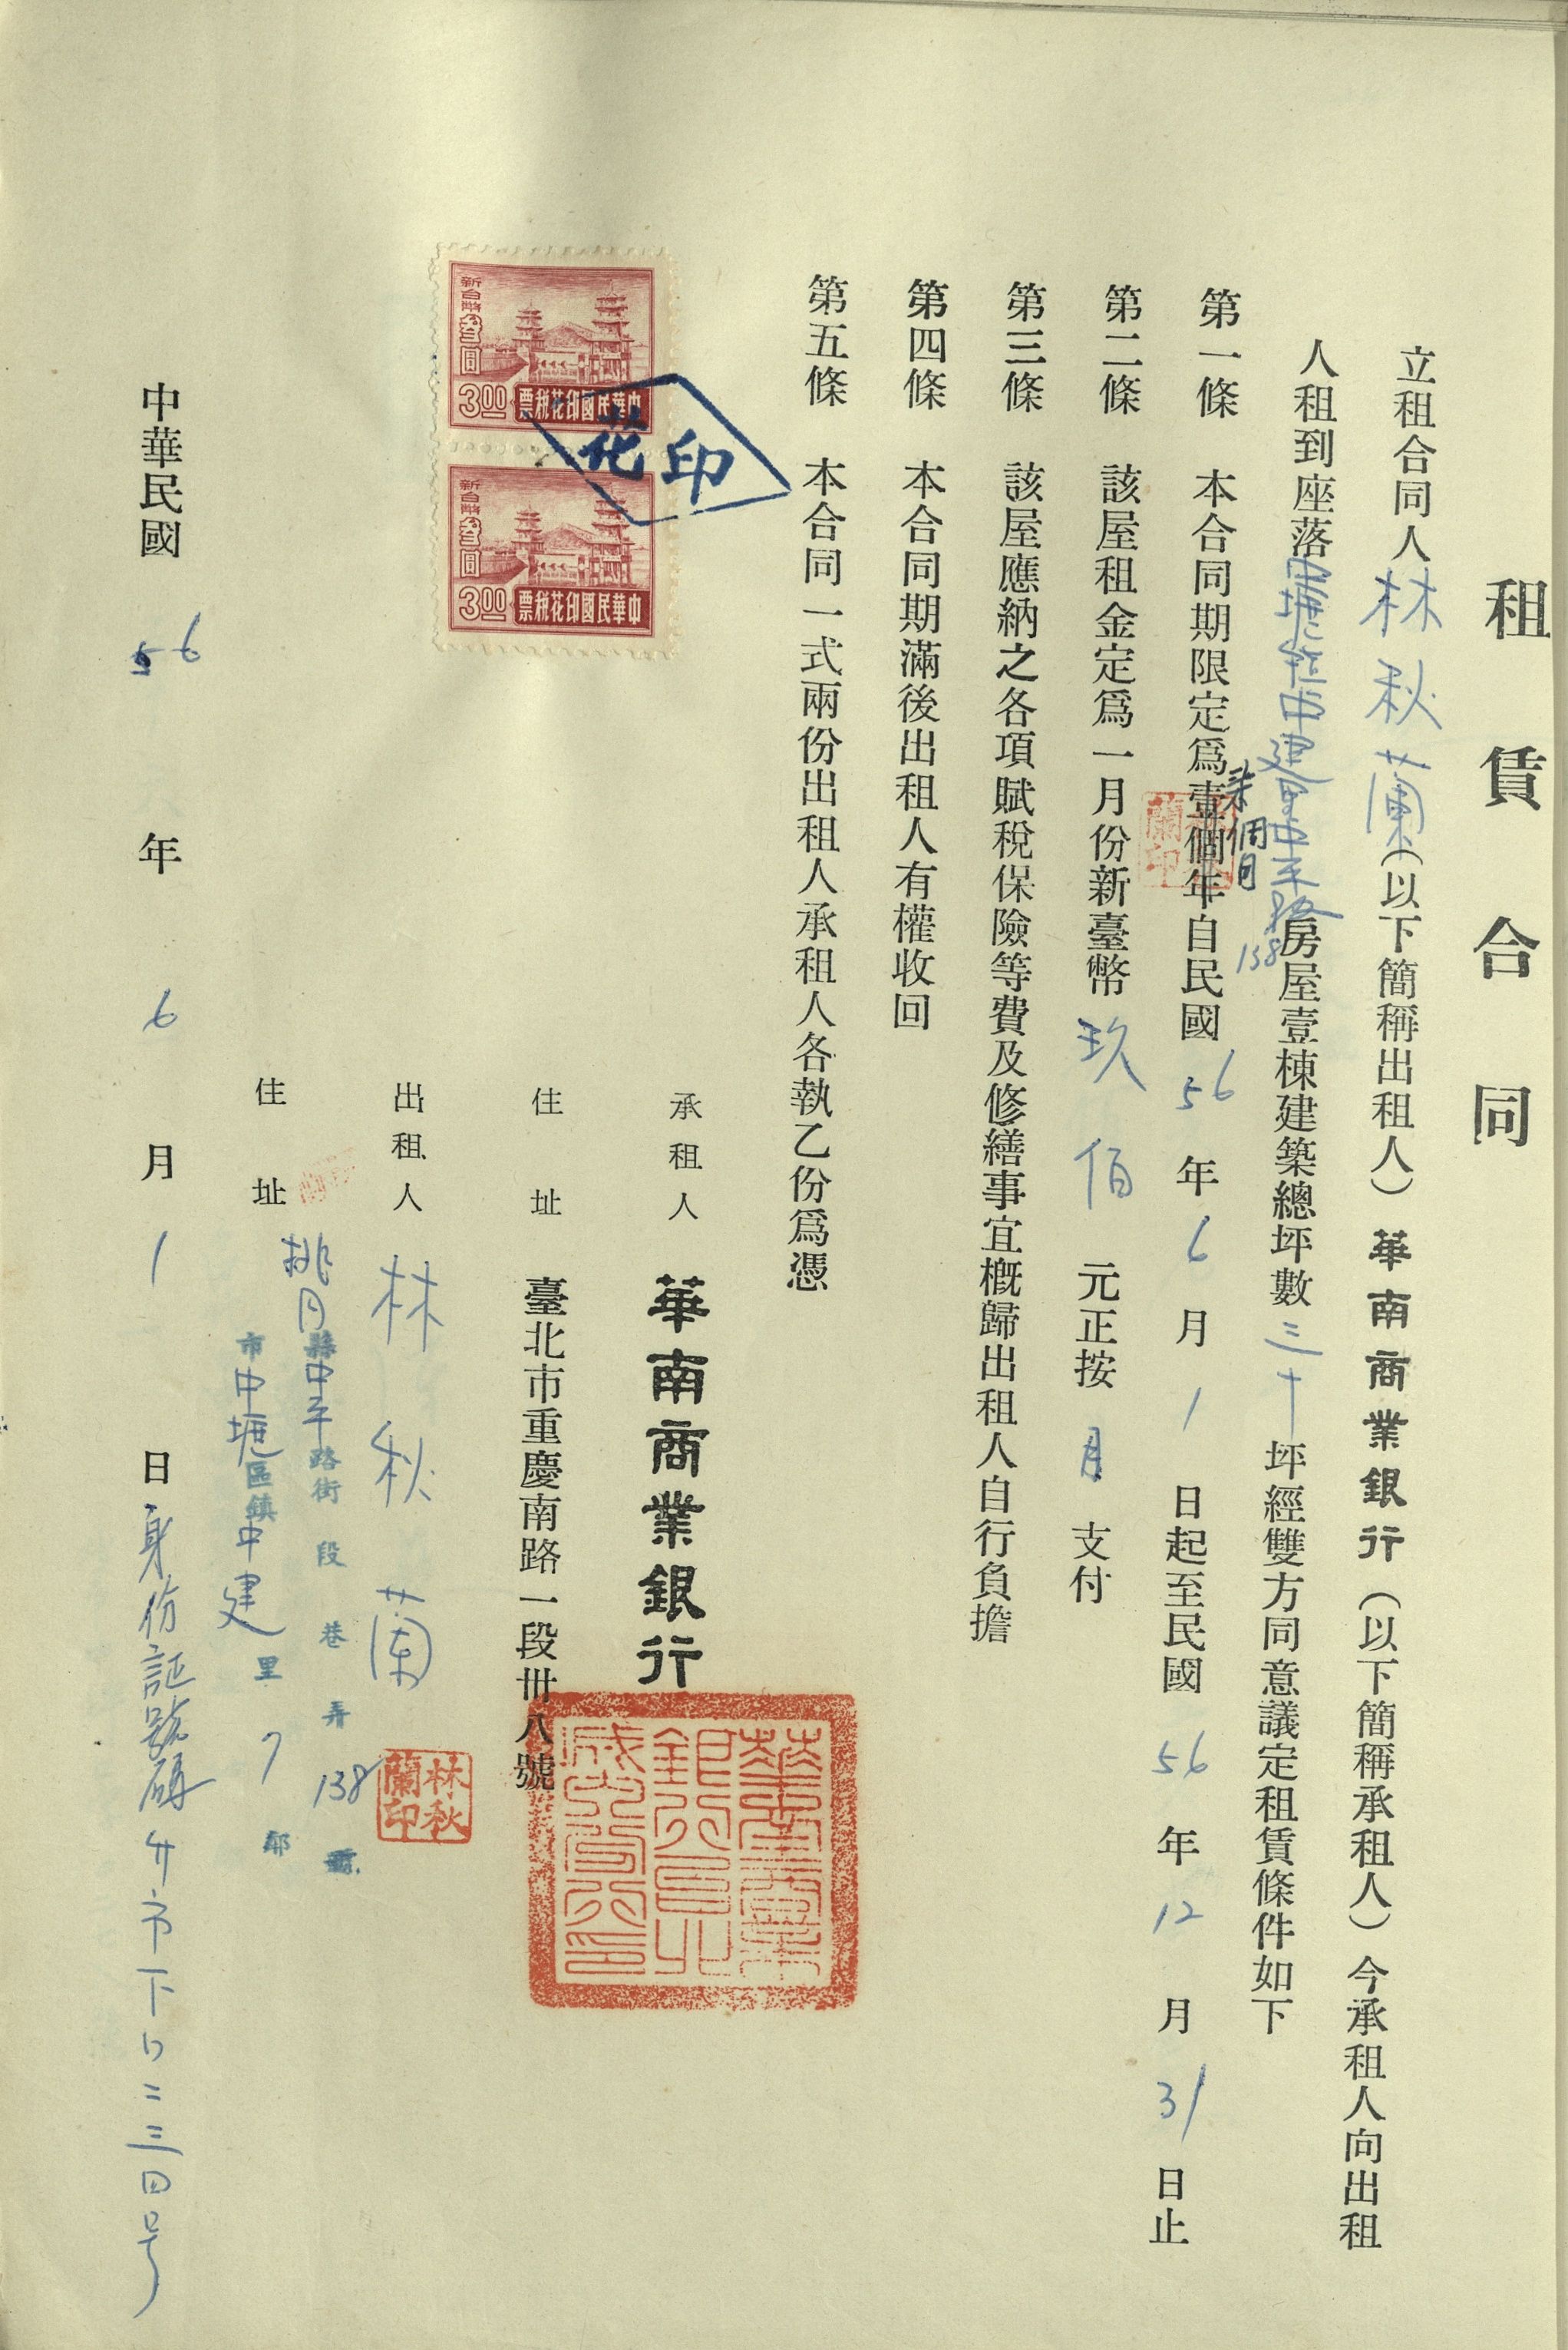 租賃合同
立租合同人林秋蘭(以下簡稱出租人)華南商業銀行(以下簡稱承租人)今承租人向出租
人租到座落中壢鎮中建里中平路138房屋壹棟建築總坪數三十坪經雙方同意議定租賃條件如下
第一條 本合同期限定爲壹個年自民國56年6月1日起至民國56年12月31日止
柒個月
第二條 該屋租金定爲一月份新臺幣玖佰元正按月支付
第三條 該屋應納之各項賦稅保險等費及修繕事宜概歸出租人自行負擔
第四條 本合同期滿後出租人有權收回
第五條 本合同一式兩份出租人承租人各執乙份爲憑
新台幣叁圓
3.00 中華民國印花稅票
新台幣叁圓
3.00 中華民國印花稅票
印花
承租人 華南商業銀行
住址 臺北市重慶南路一段卅八號
出租人 林秋蘭
林秋蘭印
住址 桃園縣中平路街 段 巷 弄138號
市中壢區鎮中建里7鄰
中華民國56年6月1日身份証號碼